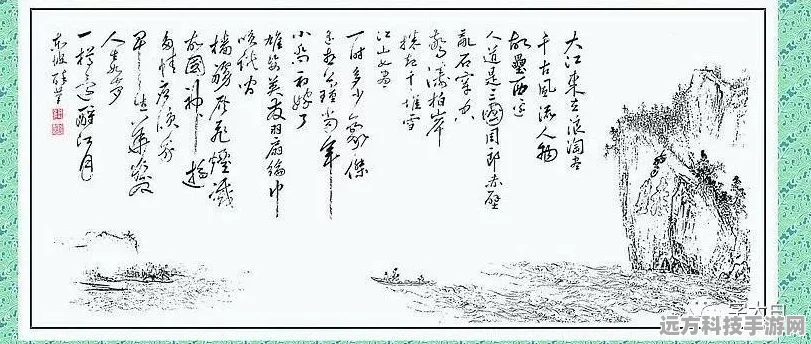 大江東去浪淘尽
千古風流人物
故壘西边
人道是三國周郎赤壁
亂石穿空
驚濤拍岸
捲起千堆雪
江山如畫
一時多少豪傑
遥想公瑾當年
小喬初嫁了
雄姿英发羽扇綸巾
談笑間
檣艣灰飛煙滅
故國神遊
多情应笑我
早生華髮
人生如夢
一樽還酹江月
東坡醉筆
远方科技手游网